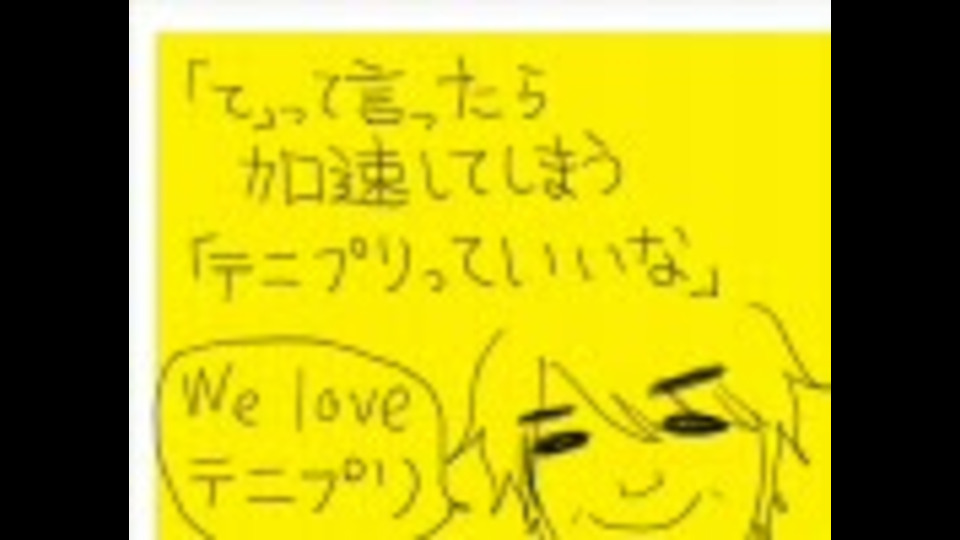 「て」って言ったら
加速してしまう
「テニプリっていいな」
We love
テニプリ